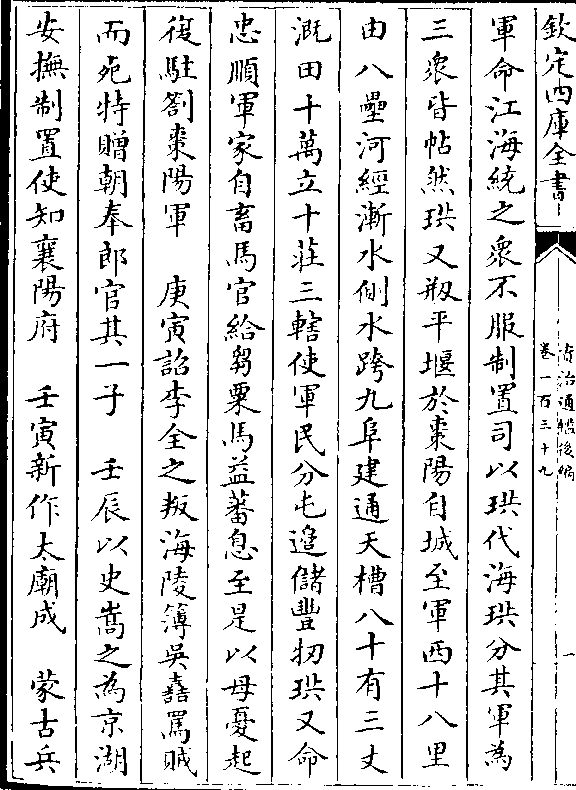 欽定四庫全書
資治通鑑後編
卷一百三十九
一
軍命江海統之衆不服制置司以珙代海珙分其軍為
三衆皆帖然珙又剏平堰於棗陽自城至軍西十八里
由八壘河經漸水側水跨九阜建通天槽八十有三丈
溉田十萬立十莊三轄使軍民分屯邉儲豐牣珙又命
忠順軍家自畜馬官給芻粟馬益蕃息至是以母憂起
復駐劄棗陽軍　庚寅詔李全之叛海陵簿吳𡅕罵賊
而死特贈朝奉郎官其一子　壬辰以史嵩之為京湖
安撫制置使知襄陽府　壬寅新作太廟成　蒙古兵